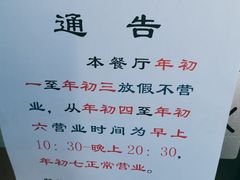 通告
本餐厅年初
一至年初三放假不营
业，从年初四至年初
六营业时间为早上
10：30-晚上20：30，
年初七正常营业。